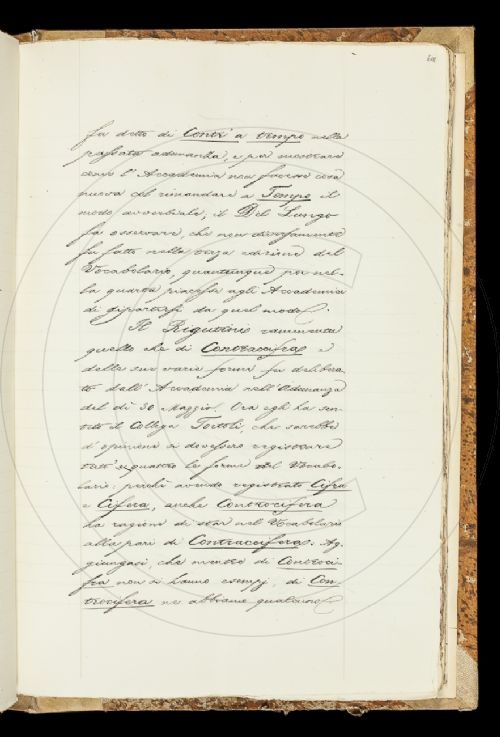 fu detto di Contr' a tempo nella
passata adunanza, e per mostrare
come l'Accademia non facesse cosa
nuova col rimandare a Tempo il
modo avverbiale, il Del Lungo
fa osservare, che non diversamente
fu fatto nella terza edizione del
Vocabolario, quantunque poi nel-
la quarta piacesse agli Accademici
di dipartirsi da quel modo.
Il Rigutini rammenta
quello che di Contraccifra e
delle sue varie forme fu delibera-
to dall'Accademia nell'Adunanza
del dì 30 Maggio. Ora egli ha sen-
tito il Collega Tortoli, che sarebbe
d'opinione si dovessero registrare
tutt'e quattro le forme nel Vocabo-
lario: perchè avendo registrato Cifra
e Cifera, anche Controcifera
ha ragione di star nel Vocabolario
alla pari di Contraccifera. Ag-
giungasi, che mentre di Controci-
fra non si hanno esempj, di Con-
trocifera ne abbiamo qualcuno